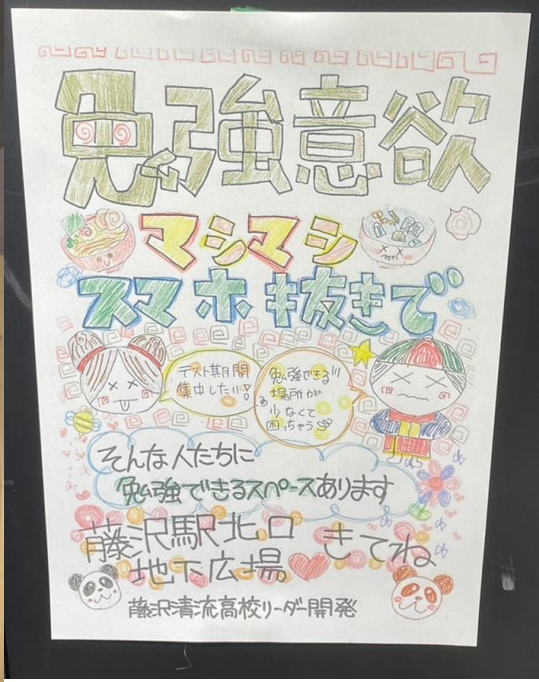 勉強意欲
マシマシ
スマホ抜きで
テスト期間
集中したい!
勉強できる
場所が
少なくて
困っちゃう
そんな人たちに
勉強できるスペースあります
藤沢駅北口
地下広場
きてね
藤沢清流高校リーダー開発